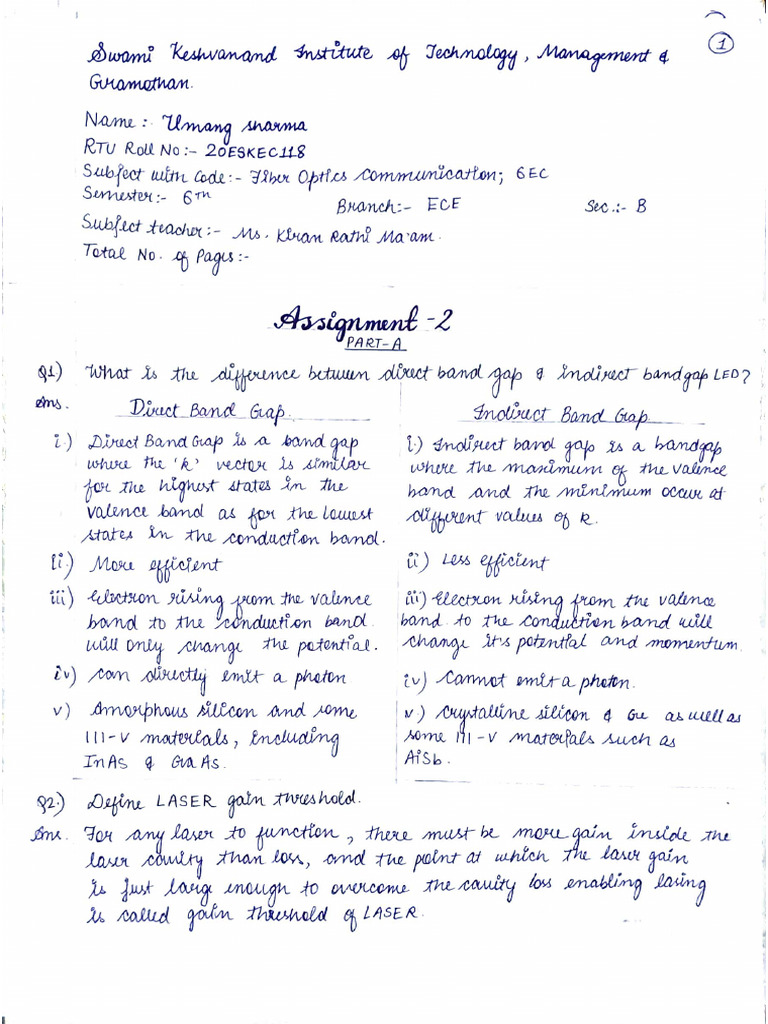 1
Swami Keshvanand Institute of Technology, Management &
Gramothan.
Name :- Umang sharma
RTU Roll No:- 20ESKEC118
Subject with Code:- Fiber Optics Communication; 6EC
Semester:- 6th Branch:- ECE Sec.:- B
Subject teacher:- Ms. Kiran Rathi Ma'am.
Total No. of Pages:-
Assignment -2
PART-A
Q1) What is the difference between direct band gap & indirect bandgap LED?
Ans. Direct Band Gap.
i.) Direct Band Gap is a band gap
where the 'k' vector is similar
for the highest states in the
valence band as for the lowest
states in the conduction band.
ii.) More efficient
iii) Electron rising from the valence
band to the conduction band
will only change the potential.
iv) Can directly emit a photon
v) Amorphous silicon and some
III-V materials, including
InAs & GaAs.
Indirect Band Gap.
i.) Indirect band gap is a bandgap
where the maximum of the valence
band and the minimum occur at
different values of k.
ii) Less efficient
iii) Electron rising from the valence
band to the conduction band will
change it's potential and momentum.
iv) Cannot emit a photon.
v.) Crystalline silicon & Ge as well as
some III-V materials such as
AiSb.
Q2.) Define LASER gain threshold.
Ans. For any laser to function, there must be more gain inside the
laser cavity than loss, and the point at which the laser gain
is just large enough to overcome the cavity loss enabling lasing
is called gain threshold of LASER.